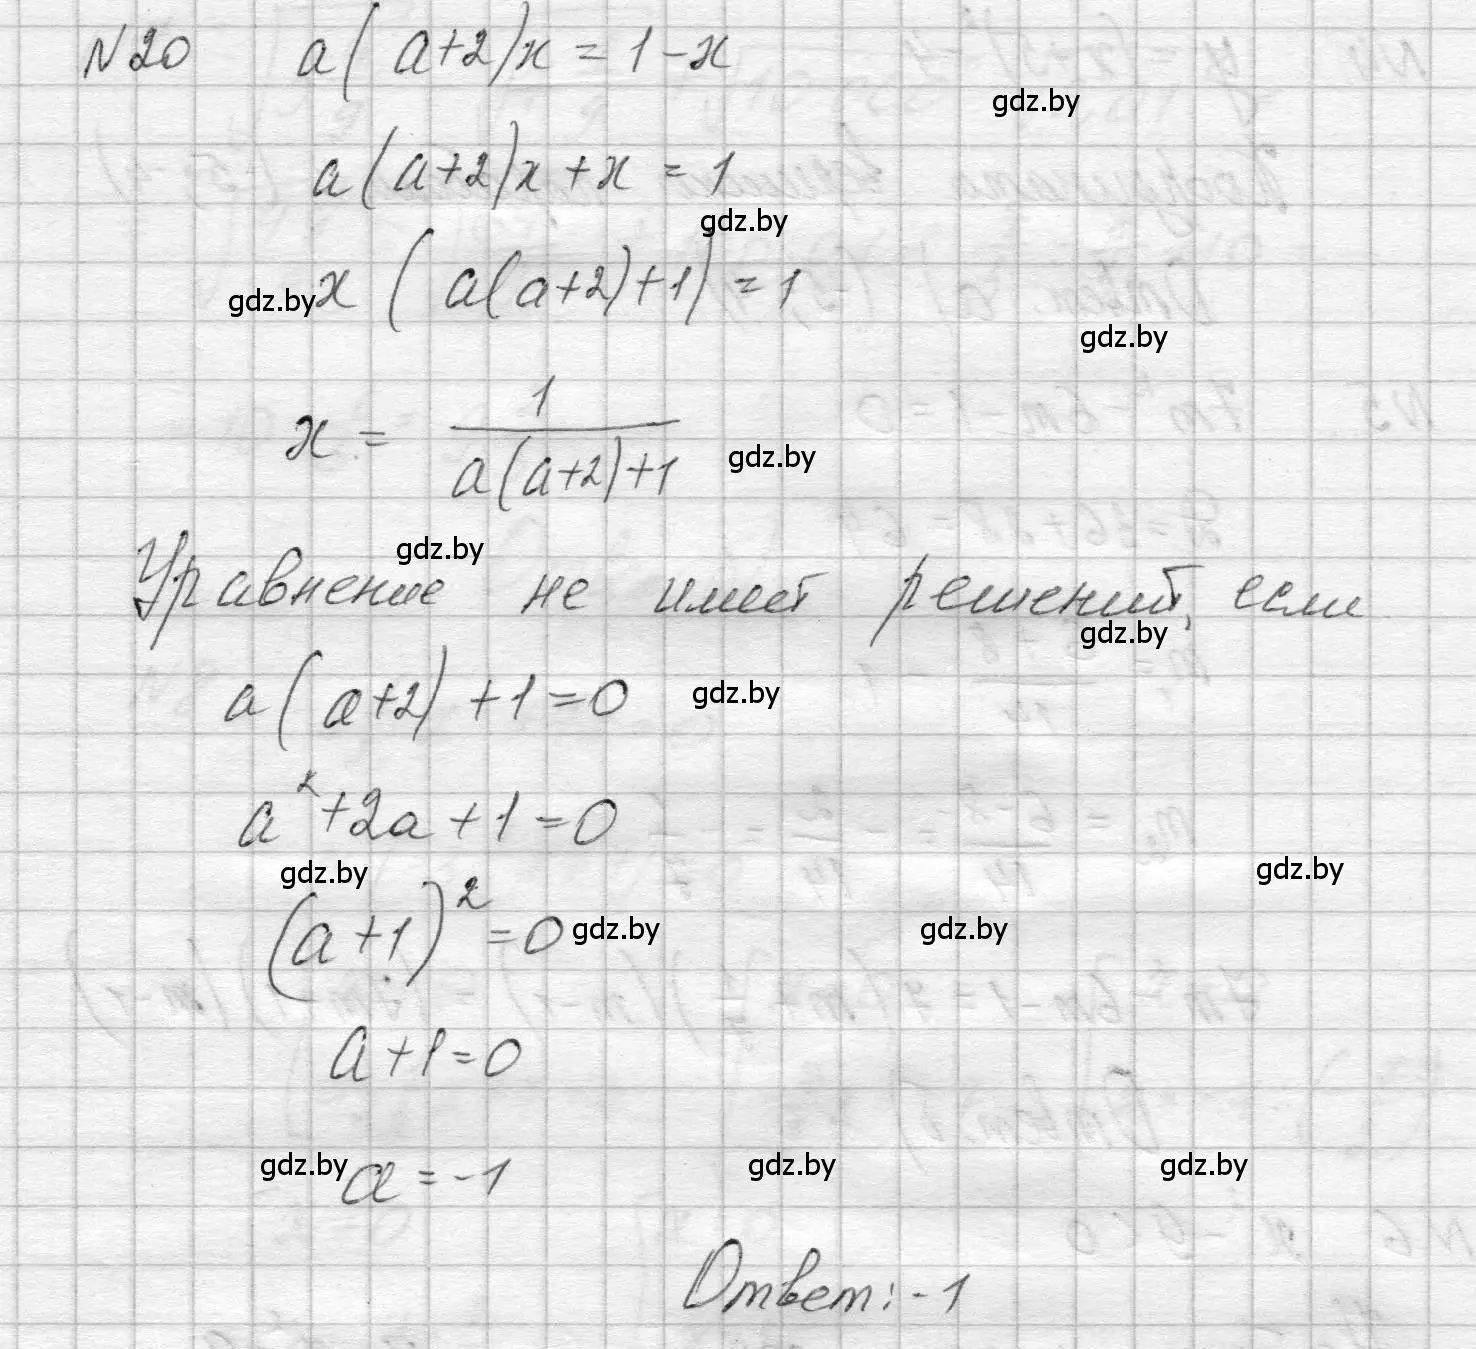 N20 a(a+2)x=1-x
gdz.by
a(a+2)x+x=1
gdz.by
gdz.by x(a(a+2)+1)=1
gdz.by
x = 1/(a(a+2)+1)
gdz.by
gdz.by
Уравнение не имеет решений, если
gdz.by
a(a+2)+1=0 gdz.by
a²+2a+1=0
gdz.by gdz.by
(a+1)²=0 gdz.by gdz.by
a+1=0
gdz.by a=-1 gdz.by gdz.by
Ответ: -1